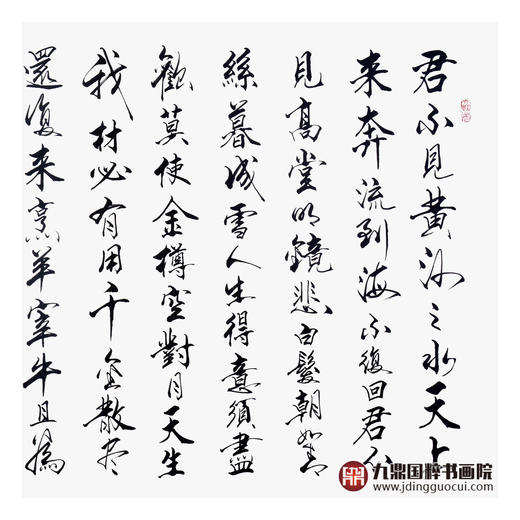 君不見黄河之水天上
来奔流到海不復回君不
見高堂明鏡悲白髮朝如青
絲暮成雪人生得意須盡
歡莫使金樽空對月天生
我材必有用千金散尽
還復来烹羊宰牛且為
九鼎国粹书画院
www.jdingguocui.com